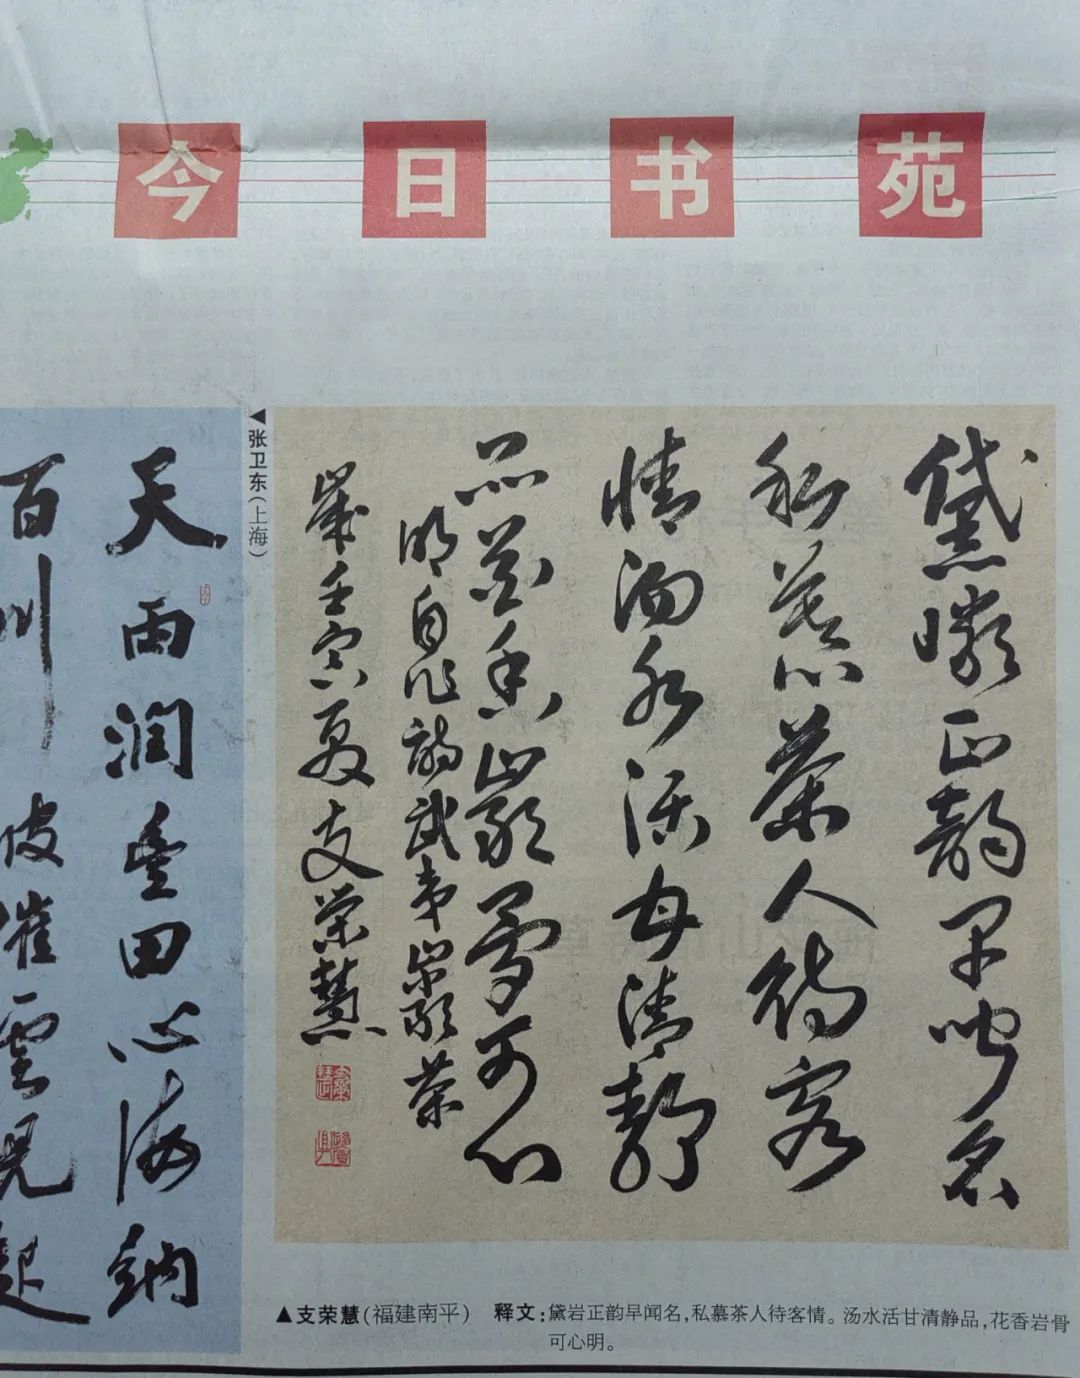 今日书苑
黛巖正韵早闻名
私慕茶人待客
情汤水活甘清静
品花香岩骨可心
明自作诗武夷岩茶
岁壬寅夏支荣慧
◀张卫东（上海）
天雨润丰田心海纳
百川
波催云见起
▲支荣慧（福建南平） 释文：黛岩正韵早闻名，私慕茶人待客情。汤水活甘清静品，花香岩骨
可心明。